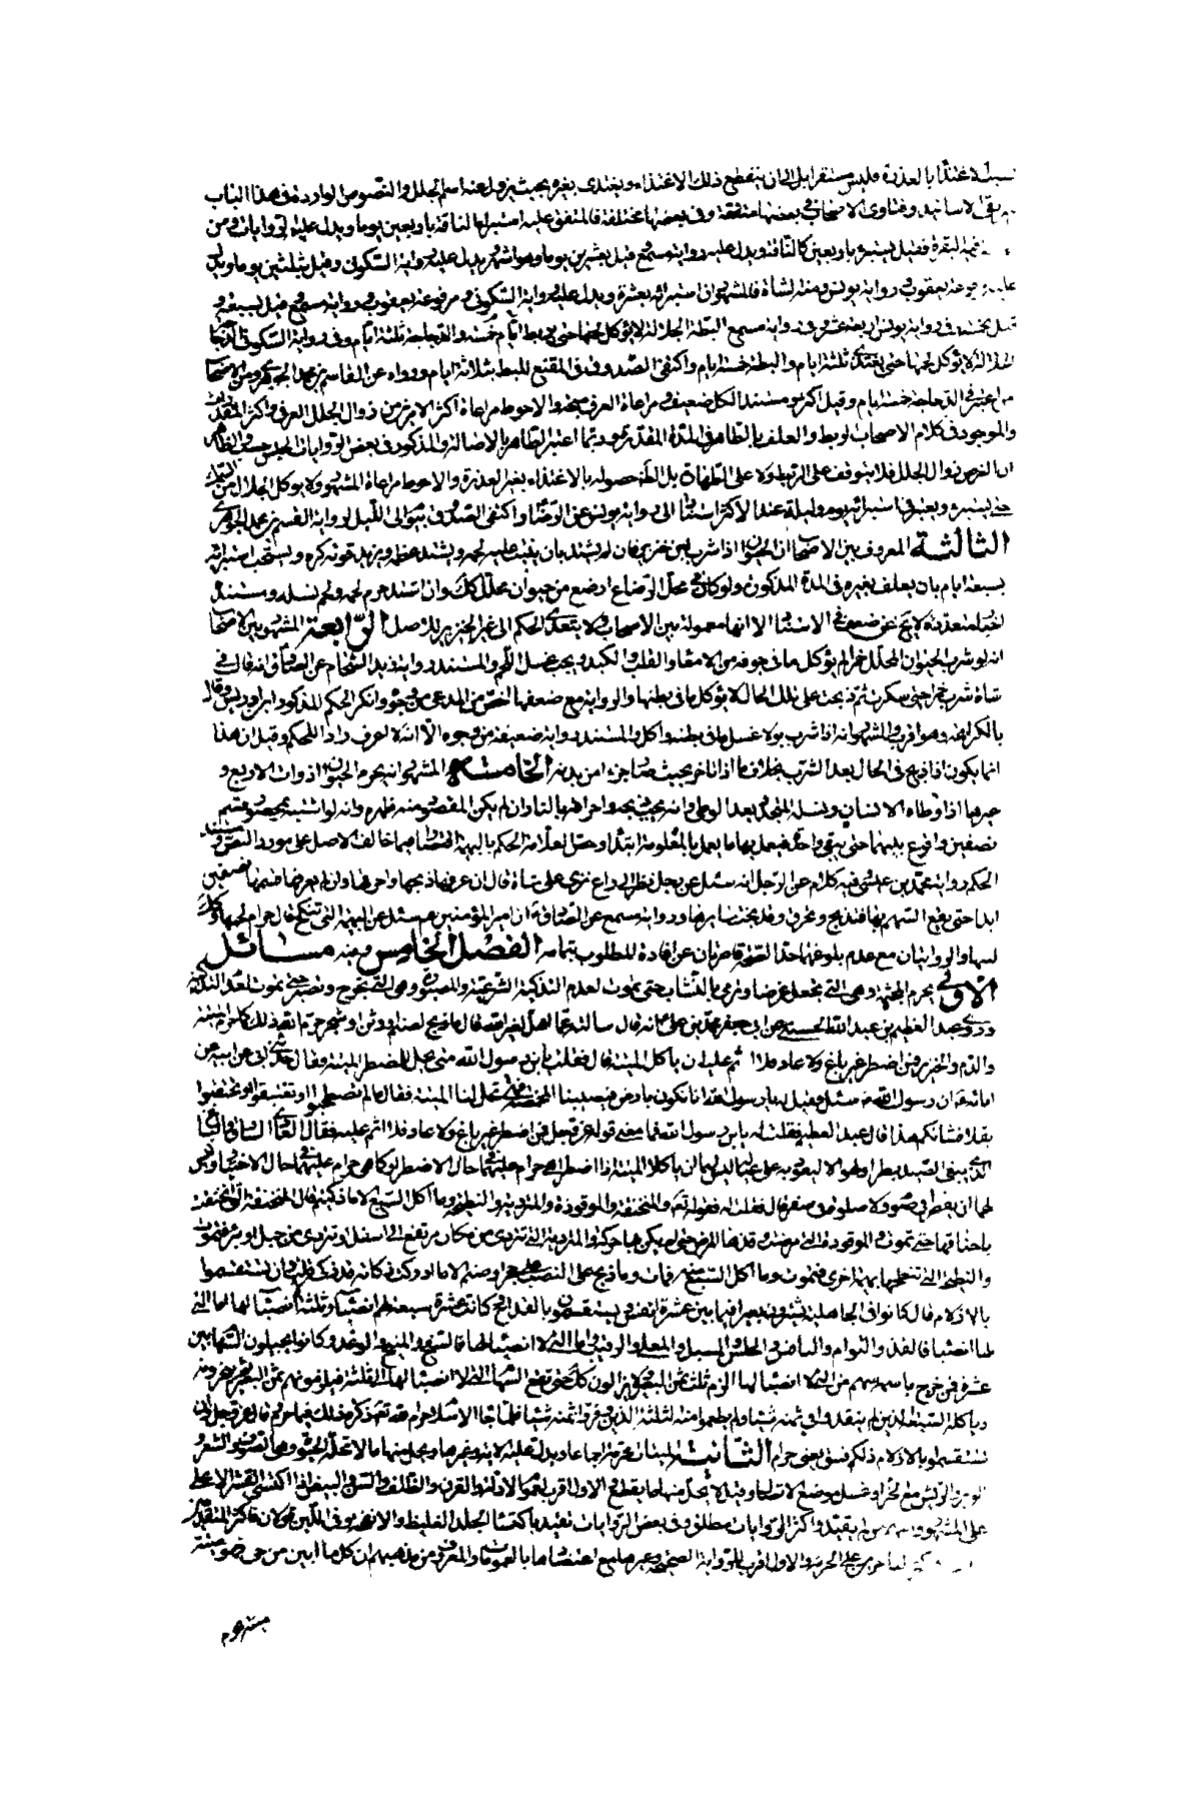 الاغتذا بالعذرة فليس مستقرا بل الى ان ينقطع ذلك الاغتذاء ويغتذى بغيره بحيث يزول عنه اسم الجلل والنصوص الواردة فى هذا الباب
الاسانيد وفتاوى الاصحاب فى بعضها متفقة وفى بعضها مختلفة فالمتفق عليه استبراء الناقة باربعين يوما ويدل عليه الروايات ومن
البقرة فقيل يستبرء باربعين كالناقة ويدل عليه رواية مسمع وقيل بعشرين يوما وهو اشهر ويدل عليه رواية السكونى وقيل بثلثين يوما ويدل
عليه مرفوعة يعقوب ورواية يونس ومنه الشاة فالمشهور ان استبرائه بعشرة ويدل عليه رواية السكونى ومرفوعة يعقوب ورواية مسمع وقيل بسبعة و
قيل بخمسة وفى رواية يونس اربعة عشر وفى رواية مسمع البطة الجلالة لا يؤكل لحمها حتى يربط خمسة ايام والدجاجة ثلثة ايام وفى رواية السكونى الدجاجة
الجلالة لا يؤكل لحمها حتى يغتذى ثلثة ايام والبطة خمسة ايام واكتفى الصدوق فى المقنع للبط بثلاثة ايام ورواه عن القاسم بن محمد الجوهرى ومن الاصحاب
من اعتبر فى الدجاجة خمسة ايام وقيل اكثر ومستند الكل ضعيف ومراعاة العرف متجه والاحوط مراعاة اكثر الامرين من زوال الجلل العرفى واكثر المقدرات
والموجود فى كلام الاصحاب الربط والعلف بالطاهر فى المدة المقدرة وربما اعتبر الطاهر بالاصالة والمذكور فى بعض الروايات الحبس حسب والظاهر
ان الغرض زوال الجلل فلا يتوقف على الربط ولا على الطهارة بل الظاهر حصوله بالاغتذاء بغير العذرة والاحوط مراعاة المشهور ولا يؤكل الجلال من السمك
حتى يستبرء ويعتبر فى استبرائه يوم وليلة عند الاكثر استنادا الى رواية يونس عن الرضا واكتفى الصدوق بيوم الى الليل لرواية القسم بن محمد الجوهرى
الثالثة المعروف بين الاصحاب ان الحيوان اذا شرب لبن خنزير فان لم يشتد بان ينبت عليه لحمه ويشتد عظمه ويزيد قوته كره ويستحب استبرائه
بسبعة ايام بان يعلف بغيره فى المدة المذكورة ولو كان فى محل الرضاع ارضع من حيوان محلل كذلك وان اشتد حرم لحمه ولحم نسله ومستنده
اخبار متعددة لا يخ عن ضعف فى الاسناد الا انها معمولة بين الاصحاب ولا يتعدى الحكم الى غير الخنزير للاصل الرابعة المشهور بين الاصحاب
انه لو شرب الحيوان المحلل خمرا لم يؤكل ما فى جوفه من الامعاء والقلب والكبد ويجب غسل اللحم والمستند رواية زيد الشحام عن الصادق انه قال فى
شاة شربت خمرا حتى سكرت ثم ذبحت على تلك الحال لا يؤكل ما فى بطنها والرواية مع ضعفها اخص من المدعى من وجوه وانكر الحكم المذكور ابن ادريس وقال
بالكراهة وهو اقرب والمشهور انه اذا شرب بولا غسل ما فى بطنه واكل والمستند رواية ضعيفة من وجوه الا انه لا يعرف راد للحكم وقيل ان هذا
انما يكون اذا ذبح فى الحال بعد الشرب بخلاف ما اذا تاخر بحيث صار جزءا من بدنه الخامسة المشهور انه يحرم الحيوان ذوات الاربع و
غيرها اذا وطاه الانسان ونسله المتجدد بعد الوطى وانه يجب ذبحه واحراقه بالنار ان لم يكن المقصود منه ظهره وانه لو اشتبه بمحصور قسم
نصفين واقرع بينهما حتى يبقى واحدة فيعمل بها ما يعمل بالمعلومة ابتداء وخص العلامة الحكم بالبهيمة اقتصارا فيما خالف الاصل على مورد النص ومستند
الحكم رواية محمد بن عيسى فيه كلام عن الرجل انه سئل عن رجل نظر الى راع نزى على شاة قال ان عرفها ذبحها واحرقها وان لم يعرفها قسمها نصفين
ابدا حتى يقع السهم بها فتذبح وتحرق وقد نجت سايرها ورواية مسمع عن الصادق ان امير المؤمنين ع سئل عن البهيمة التى تنكح قال حرام لحمها وكذلك
لبنها والروايتان مع عدم بلوغهما حد الصحة قاصرتان عن افادة المطلوب بتمامه الفصل الخامس وفيه مسائل
الاولى يحرم المجثمة وهى التى تجعل غرضا وترمى بالنشاب حتى تموت لعدم التذكية الشرعية والمصبورة وهى التى تجرح وتصبر حتى تموت لعدم التذكية
وروى عبد العظيم بن عبد الله الحسنى عن ابى جعفر محمد بن على انه قال سالته عما اهل لغير الله قال ما ذبح لصنم او وثن او شجر حرم الله ذلك كما حرم الميتة
والدم ولحم الخنزير فمن اضطر غير باغ ولا عاد فلا اثم عليه ان ياكل الميتة قال فقلت يابن رسول الله متى يحل للمضطر الميتة فقال حدثنى ابى عن ابيه عن
ابائه ع ان رسول الله ص سئل فقيل له يا رسول الله انا نكون بارض فيصيبنا المخمصة فمتى تحل لنا الميتة فقال ما لم تصطبحوا او تغتبقوا او تحتفئوا
بقلا فشانكم بهذا قال عبد العظيم فقلت له يابن رسول الله فما معنى قوله عز وجل فمن اضطر غير باغ ولا عاد فلا اثم عليه فقال العادى السارق والباغى
الذى يبغى الصيد بطرا او لهوا لا ليعود به على عياله ليس لهما ان ياكلا الميتة اذا اضطرا هى حرام عليهما فى حال الاضطرار كما هى حرام عليهما فى حال الاختيار وليس
لهما ان يقصرا فى صوم ولا صلوة فى سفر قال فقلت له فقوله تعالى والمنخنقة والموقوذة والمتردية والنطيحة وما اكل السبع الا ما ذكيتم قال المنخنقة التى انخنقت
باخناقها حتى تموت والموقوذة التى مرضت وقذها المرض حتى لم يكن بها حركة والمتردية التى تتردى من مكان مرتفع الى اسفل او تتردى من جبل او بئر فتموت
والنطيحة التى تنطحها بهيمة اخرى فتموت وما اكل السبع منه فمات وما ذبح على النصب على حجر او صنم الا ما ادركت ذكاته فذكى قلت وان تستقسموا
بالازلام قال كانوا فى الجاهلية يشترون بعيرا فيما بين عشرة انفس ويستقسمون بالقداح وكانت عشرة سبعة لهم انصباء وثلثة لا انصباء لها اما التى
لها انصباء فالفذ والتوام والنافس والحلس والمسبل والمعلى والرقيب واما التى لا انصباء لها فالسفيح والمنيح والوغد وكانوا يجيلون السهام بين
عشرة فمن خرج باسمه سهم من التى لا انصباء لها الزم ثلث ثمن البعير فلا يزالون كذلك حتى تقع السهام التى لا انصباء لها الى ثلثة فيلزمونهم ثمن البعير ثم ينحرونه
وياكله السبعة الذين لم ينقدوا فى ثمنه شيئا ولم يطعموا منه الثلثة الذين وفروا ثمنه شيئا فلما جاء الاسلام حرم الله تعالى ذكره ذلك فيما حرم وقال عز وجل وان
تستقسموا بالازلام ذلكم فسق يعنى حرام الثانية الميتات محرمة اجماعا ويدل عليه الاية وغيرها ويحل منها ما لا تحله الحيوة وهى الصوف والشعر و
الوبر والريش مع الجز او غسل موضع الاتصال وقيل لا يحل منها ما يقطع والاول اقرب لعموم الادلة والقرن والظلف والسن والبيض اذا اكتسى القشر الاعلى
على المشهور ومنهم من لم يقيد واكثر الروايات مطلقة وفى بعض الروايات تقييد باكتساء الجلد الغليظ والانفحة وفى اللبن قولان فاكثر المتقدمين
على الحرمة والاول اقرب للرواية الصحيحة وغيرها مع اعتضادها بالعمومات والمعروف من مذهبهم ان كل ما ابين من حى فهو ميتة